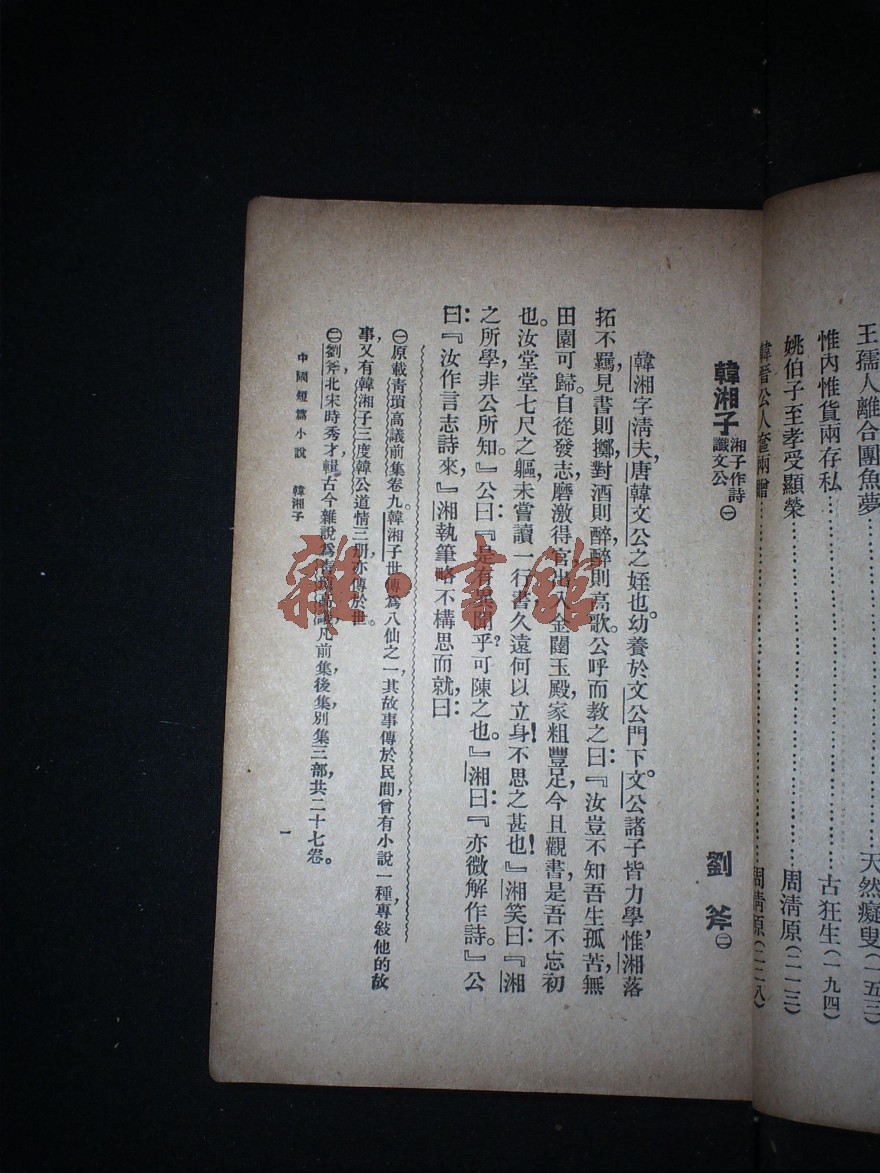 王孺人離合團魚夢……………天然癡叟（一五三）
惟內惟貨兩存私……………古狂生（一九四）
姚伯子至孝受顯榮……………周清原（二一三）
韓晉公人奩兩贈……………周清原（二二八）
韓湘子 湘子作詩讖文公 ㊀ 劉斧 ㊁
韓湘字清夫，唐韓文公之姪也。幼養於文公門下。文公諸子皆力學，惟湘落
拓不羈，見書則擲，對酒則醉，醉則高歌。公呼而教之曰：『汝豈不知吾生孤苦，無
田園可歸。自從發志磨激，得官出入金闥玉殿，家粗豐足，今且觀書，是吾不忘初
也。汝堂堂七尺之軀，未嘗讀一行書，久遠何以立身！不思之甚也！』湘笑曰：『湘
之所學，非公所知。』公曰：『是有異聞乎？可陳之也。』湘曰：『亦微解作詩。』公
曰：『汝作言志詩來，』湘執筆，略不構思而就，曰：
㊀原載青瑣高議前集卷九。韓湘子世傳爲八仙之一，其故事傳於民間，曾有小說一種，專敍他的故
事，又有韓湘子三度韓公道情三册，亦傳於世。
㊁劉斧，北宋時秀才，輯古今雜說爲青瑣高議，凡前集，後集，別集三部，共二十七卷。
中國短篇小說 韓湘子
一
雜·書館